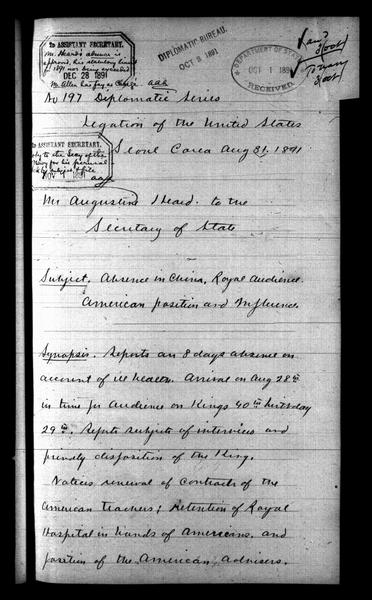 To ASSISTANT SECRETARY.
Mr. Heard's absence is
approved, his statutory limit
for 1891 not being exceeded
DEC 28 1891
Mr Allen has pay as Chargé
aaa
DIPLOMATIC BUREAU.
OCT 3 1891
DEPARTMENT OF STATE
OCT 1 1891
RECEIVED
No 197 Diplomatic Series
Legation of the United States
Seoul Corea Aug 31, 1891
To ASSISTANT SECRETARY.
Copy to the Secy of the
Navy for his perusal
1891
aaa
Mr Augustine Heard to the
Secretary of State
Subject. Absence in China, Royal Audience.
American position and Influence.
Synopsis. Reports an 8 days absence on
account of ill health. Arrival on Aug 28th
in time for audience on Kings 40th birthday
29th. Reports subjects of interviews and
friendly disposition of the King.
Notices renewal of Contracts of the
American teachers; retention of Royal
Hospital in hands of Americans, and
position of the American advisers.